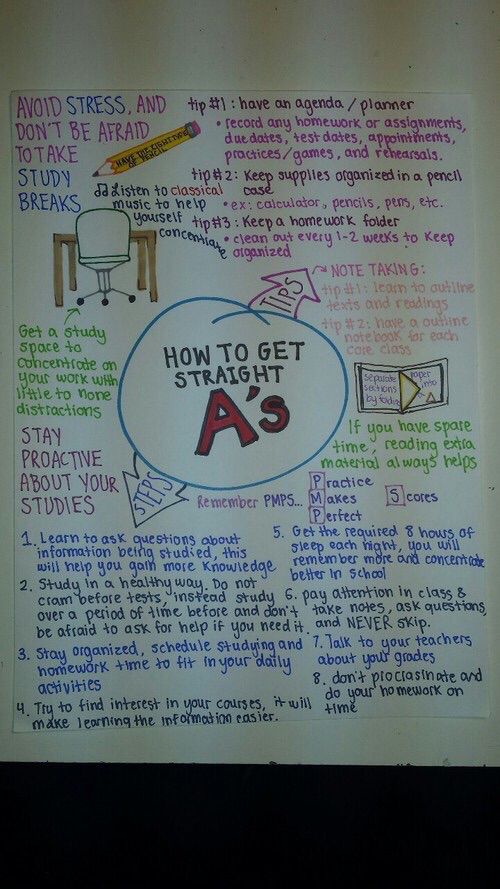 AVOID STRESS, AND
DON'T BE AFRAID
TO TAKE
STUDY
BREAKS
HAVE THE RIGHT KIND
OF PENCIL
tip #1: have an agenda/planner
• record any homework or assignments,
due dates, test dates, appointments,
practices/games, and rehearsals.
tip #2: Keep supplies organized in a pencil
case
• ex: calculator, pencils, pens, etc.
tip #3: Keep a homework folder
• clean out every 1-2 weeks to keep
organized
Listen to classical
music to help
yourself
concentrate
TIPS
NOTE TAKING:
tip #1: learn to outline
texts and readings
tip #2: have a outline
notebook for each
core class
separate
sections
by folding
paper
into
Get a study
space to
concentrate on
your work with
little to none
distractions
HOW TO GET
STRAIGHT
A's
If you have spare
time, reading extra
material always helps
STAY
PROACTIVE
ABOUT YOUR
STUDIES
STEPS
Remember PMPS...
Practice
Makes
Perfect
Scores
1. Learn to ask questions about
information being studied, this
will help you gain more knowledge
2. Study in a healthy way. Do not
cram before tests, instead study
over a period of time before and don't
be afraid to ask for help if you need it.
3. Stay organized, schedule studying and
homework time to fit in your daily
activities
4. Try to find interest in your courses, it will
make learning the information easier.
5. Get the required 8 hours of
sleep each night, you will
remember more and concentrate
better in school
6. pay attention in class &
take notes, ask questions,
and NEVER skip.
7. Talk to your teachers
about your grades
8. don't procrasinate and
do your homework on
time